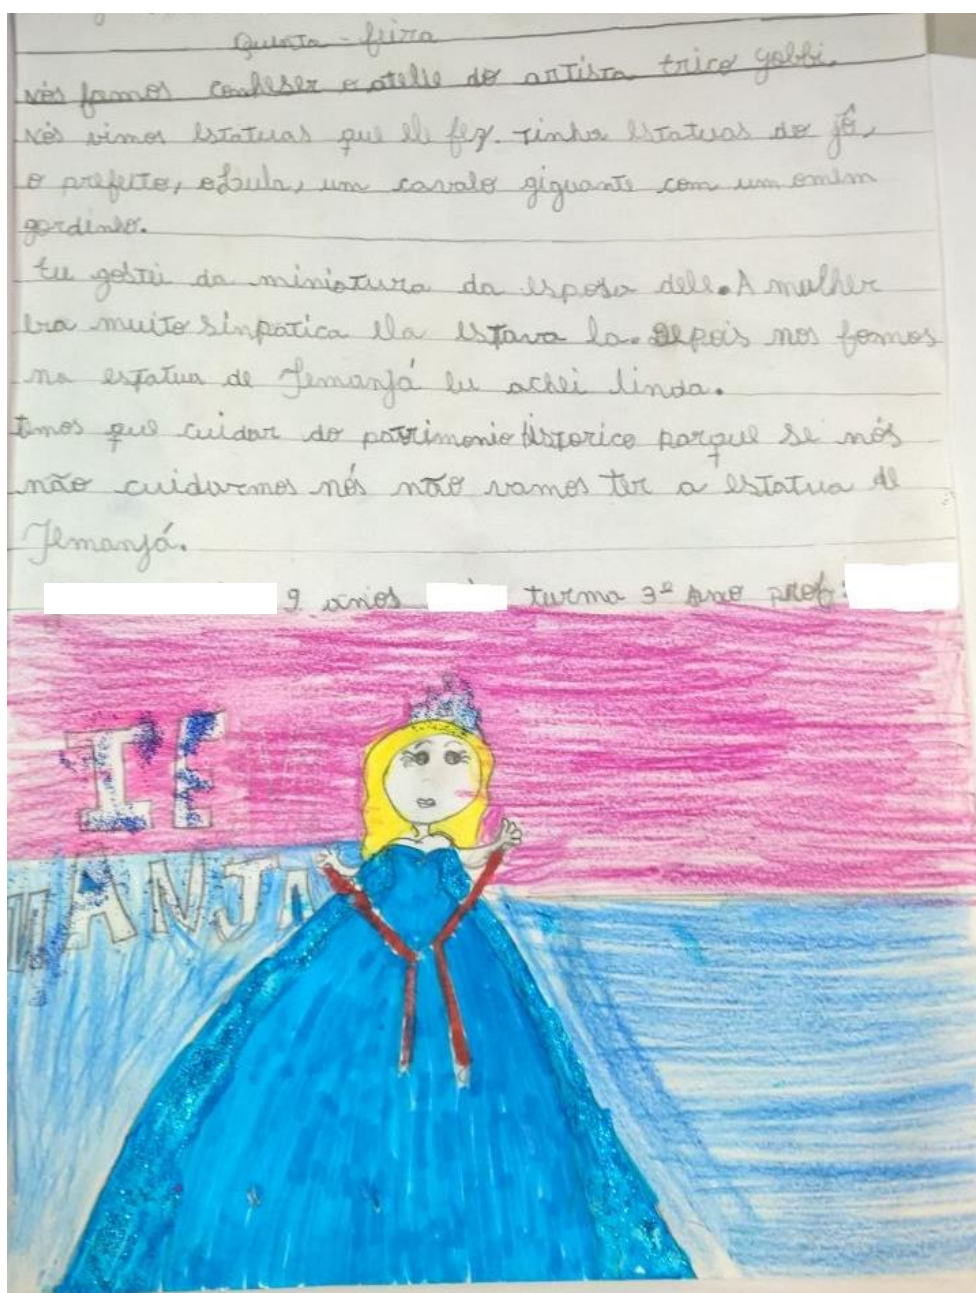 Quinta-feira
nós fomos conheser o atelie do artista trico gobbi.
nós vimos estatuas que ele fez. tinha estatuas do jô,
o prefeito, o Lula, um cavalo giguante com um omim
gordinho.
Eu gostei da miniatura da esposa dele. A mulher
era muito sinpatica ela estava la. Depois nos fomos
na estatua de Iemanjá eu achei linda.
temos que cuidar do patrimonio istorico porque se nós
não cuidarmos nós não vamos ter a estatua de
Iemanjá.
9 anos turma 3º ano prof:
IE
MANJA